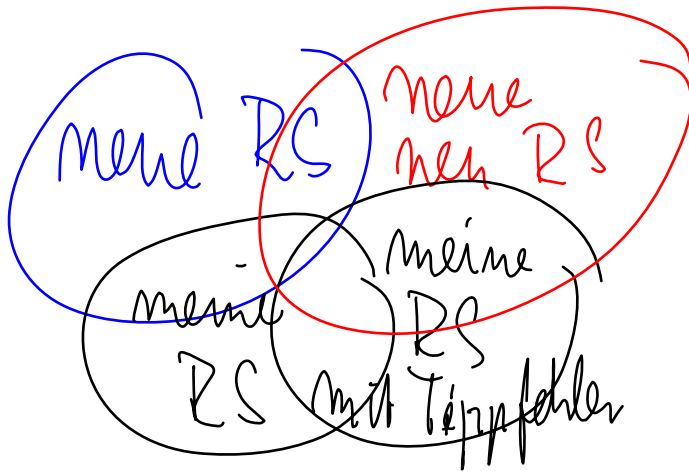 neue RS
neue
neu RS
meine
RS
meine
RS
mit Tippfehler